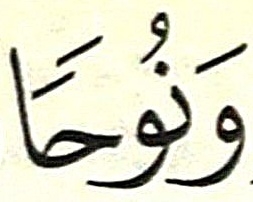 وَنُوحَا